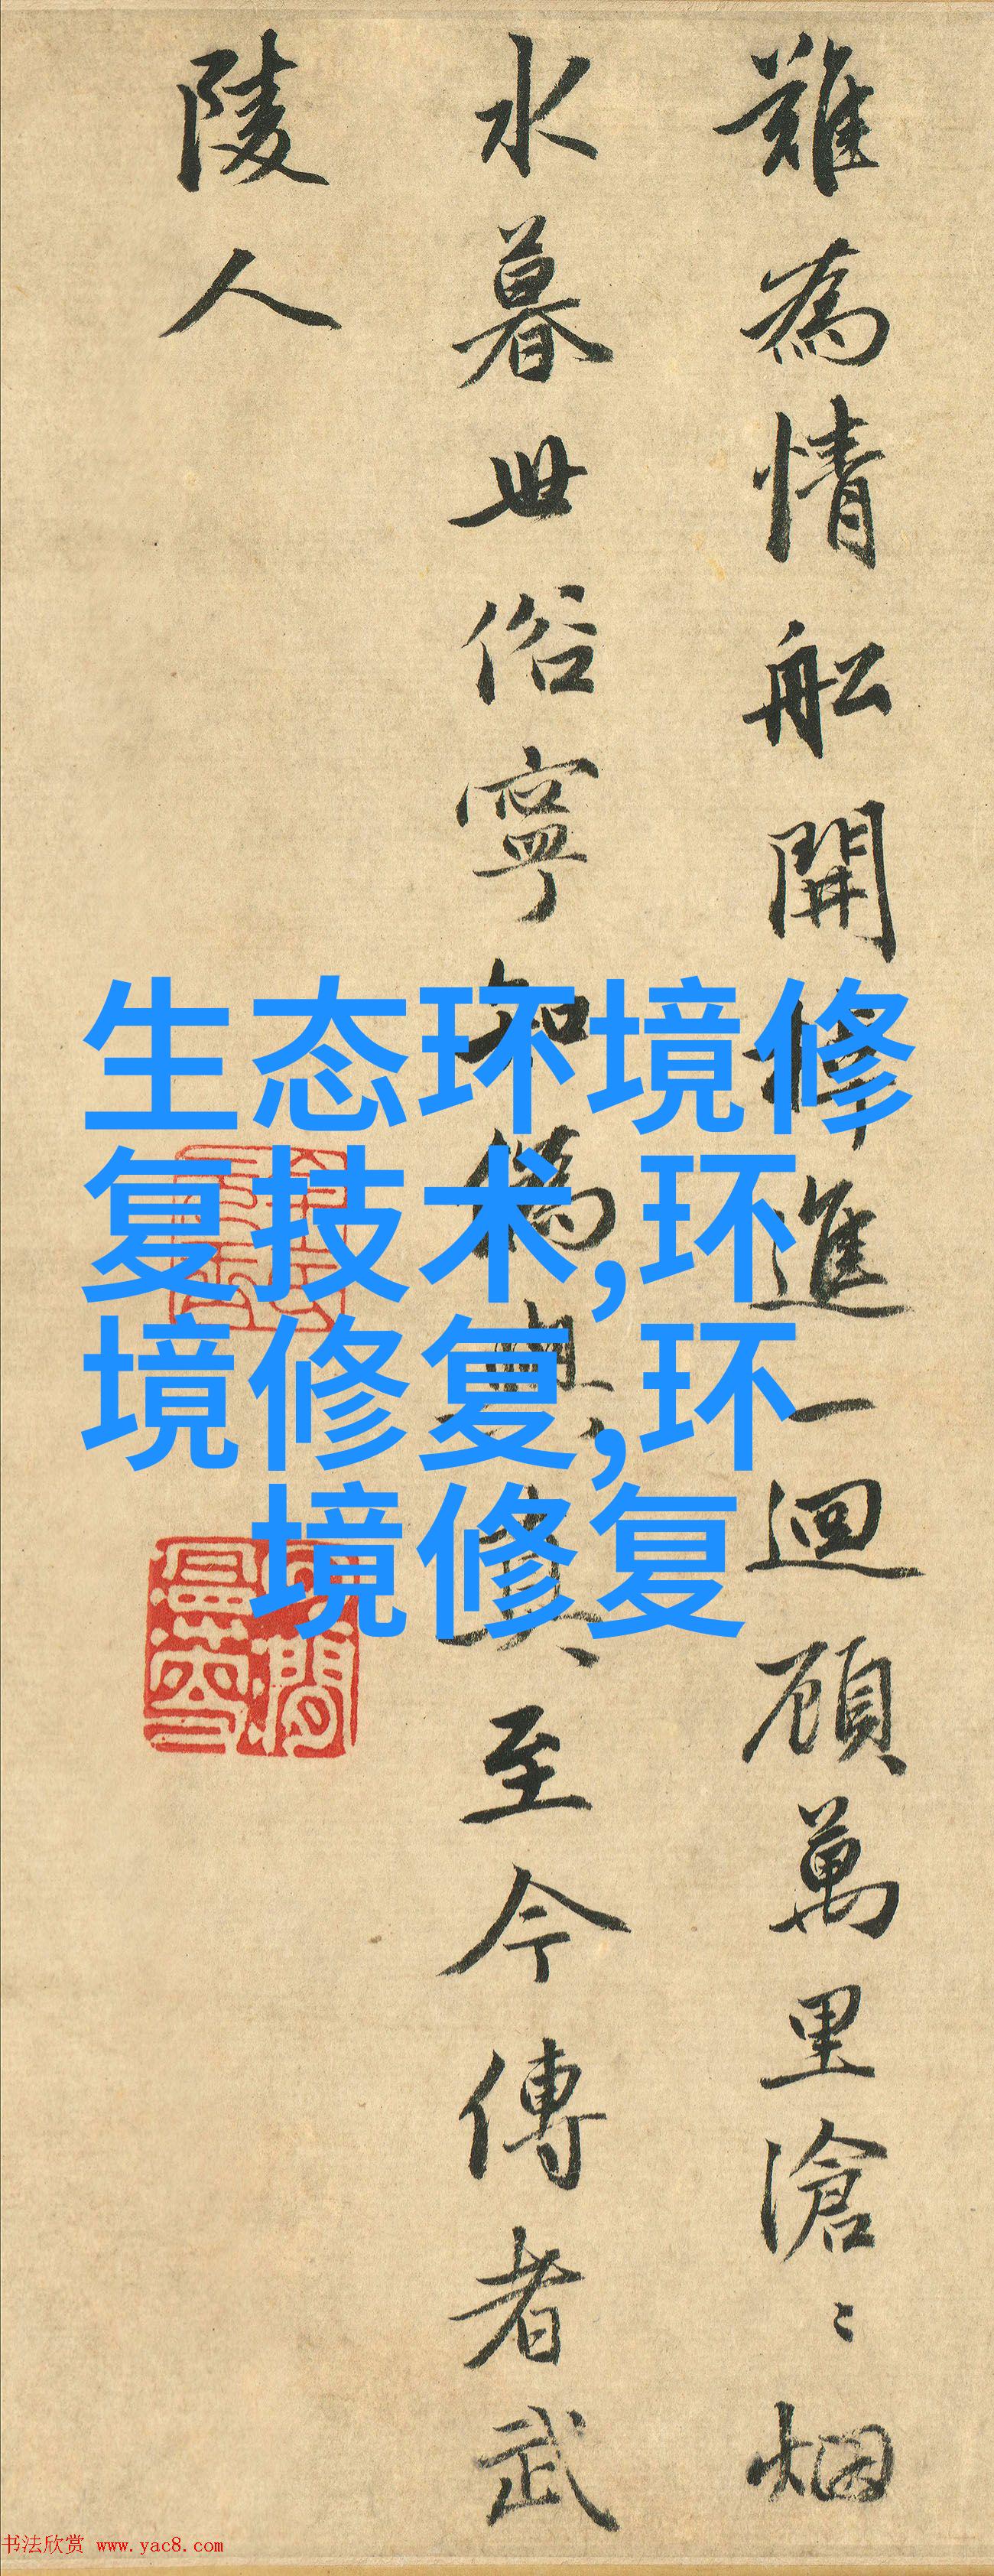 難為情舩開棹進一迴顧萬里滄〻烟
水暮世俗寧知偽與真至今傳者武
陵人
生态环境修
复技术,环
境修复,环
境修复
书法欣赏 www.yac8.com